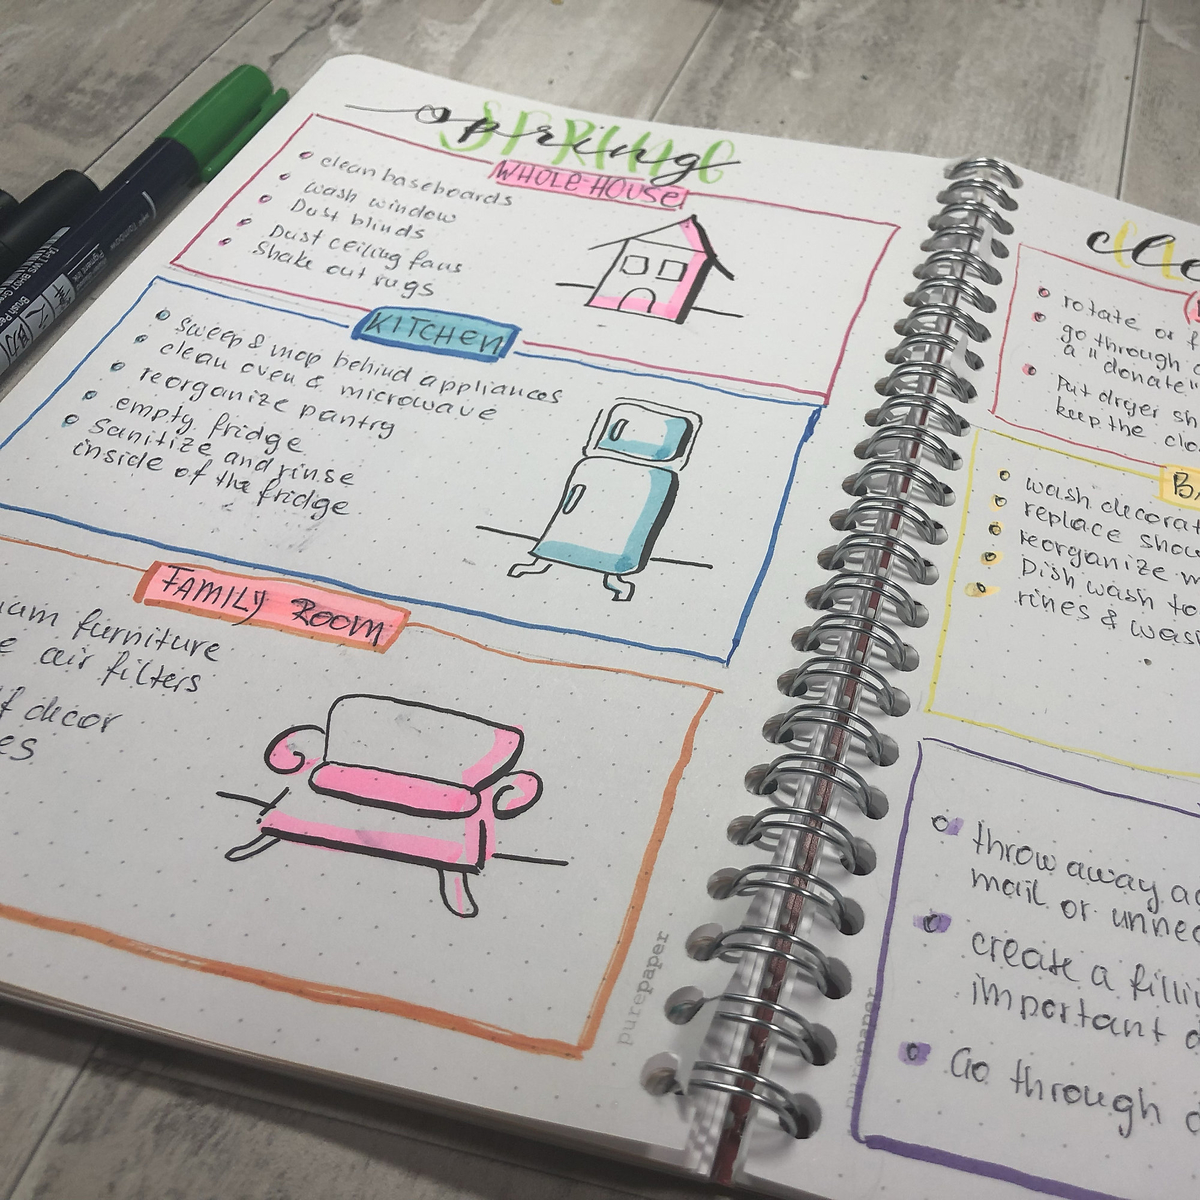 spring
SPRING
WHOLE HOUSE
clean baseboards
wash window
Dust blinds
Dust ceiling fans
Shake out rugs
KITCHEN
sweep & mop behind appliances
clean oven & microwave
reorganize pantry
empty fridge
Sanitize and rinse
inside of the fridge
FAMILY ROOM
furniture
air filters
decor
purepaper
rotate or
go through
a "donate"
Put dryer
keep the
wash
replace
reorganize
Dish wash to
rines &
throw away
mail or
create a
important
Go through
purepaper